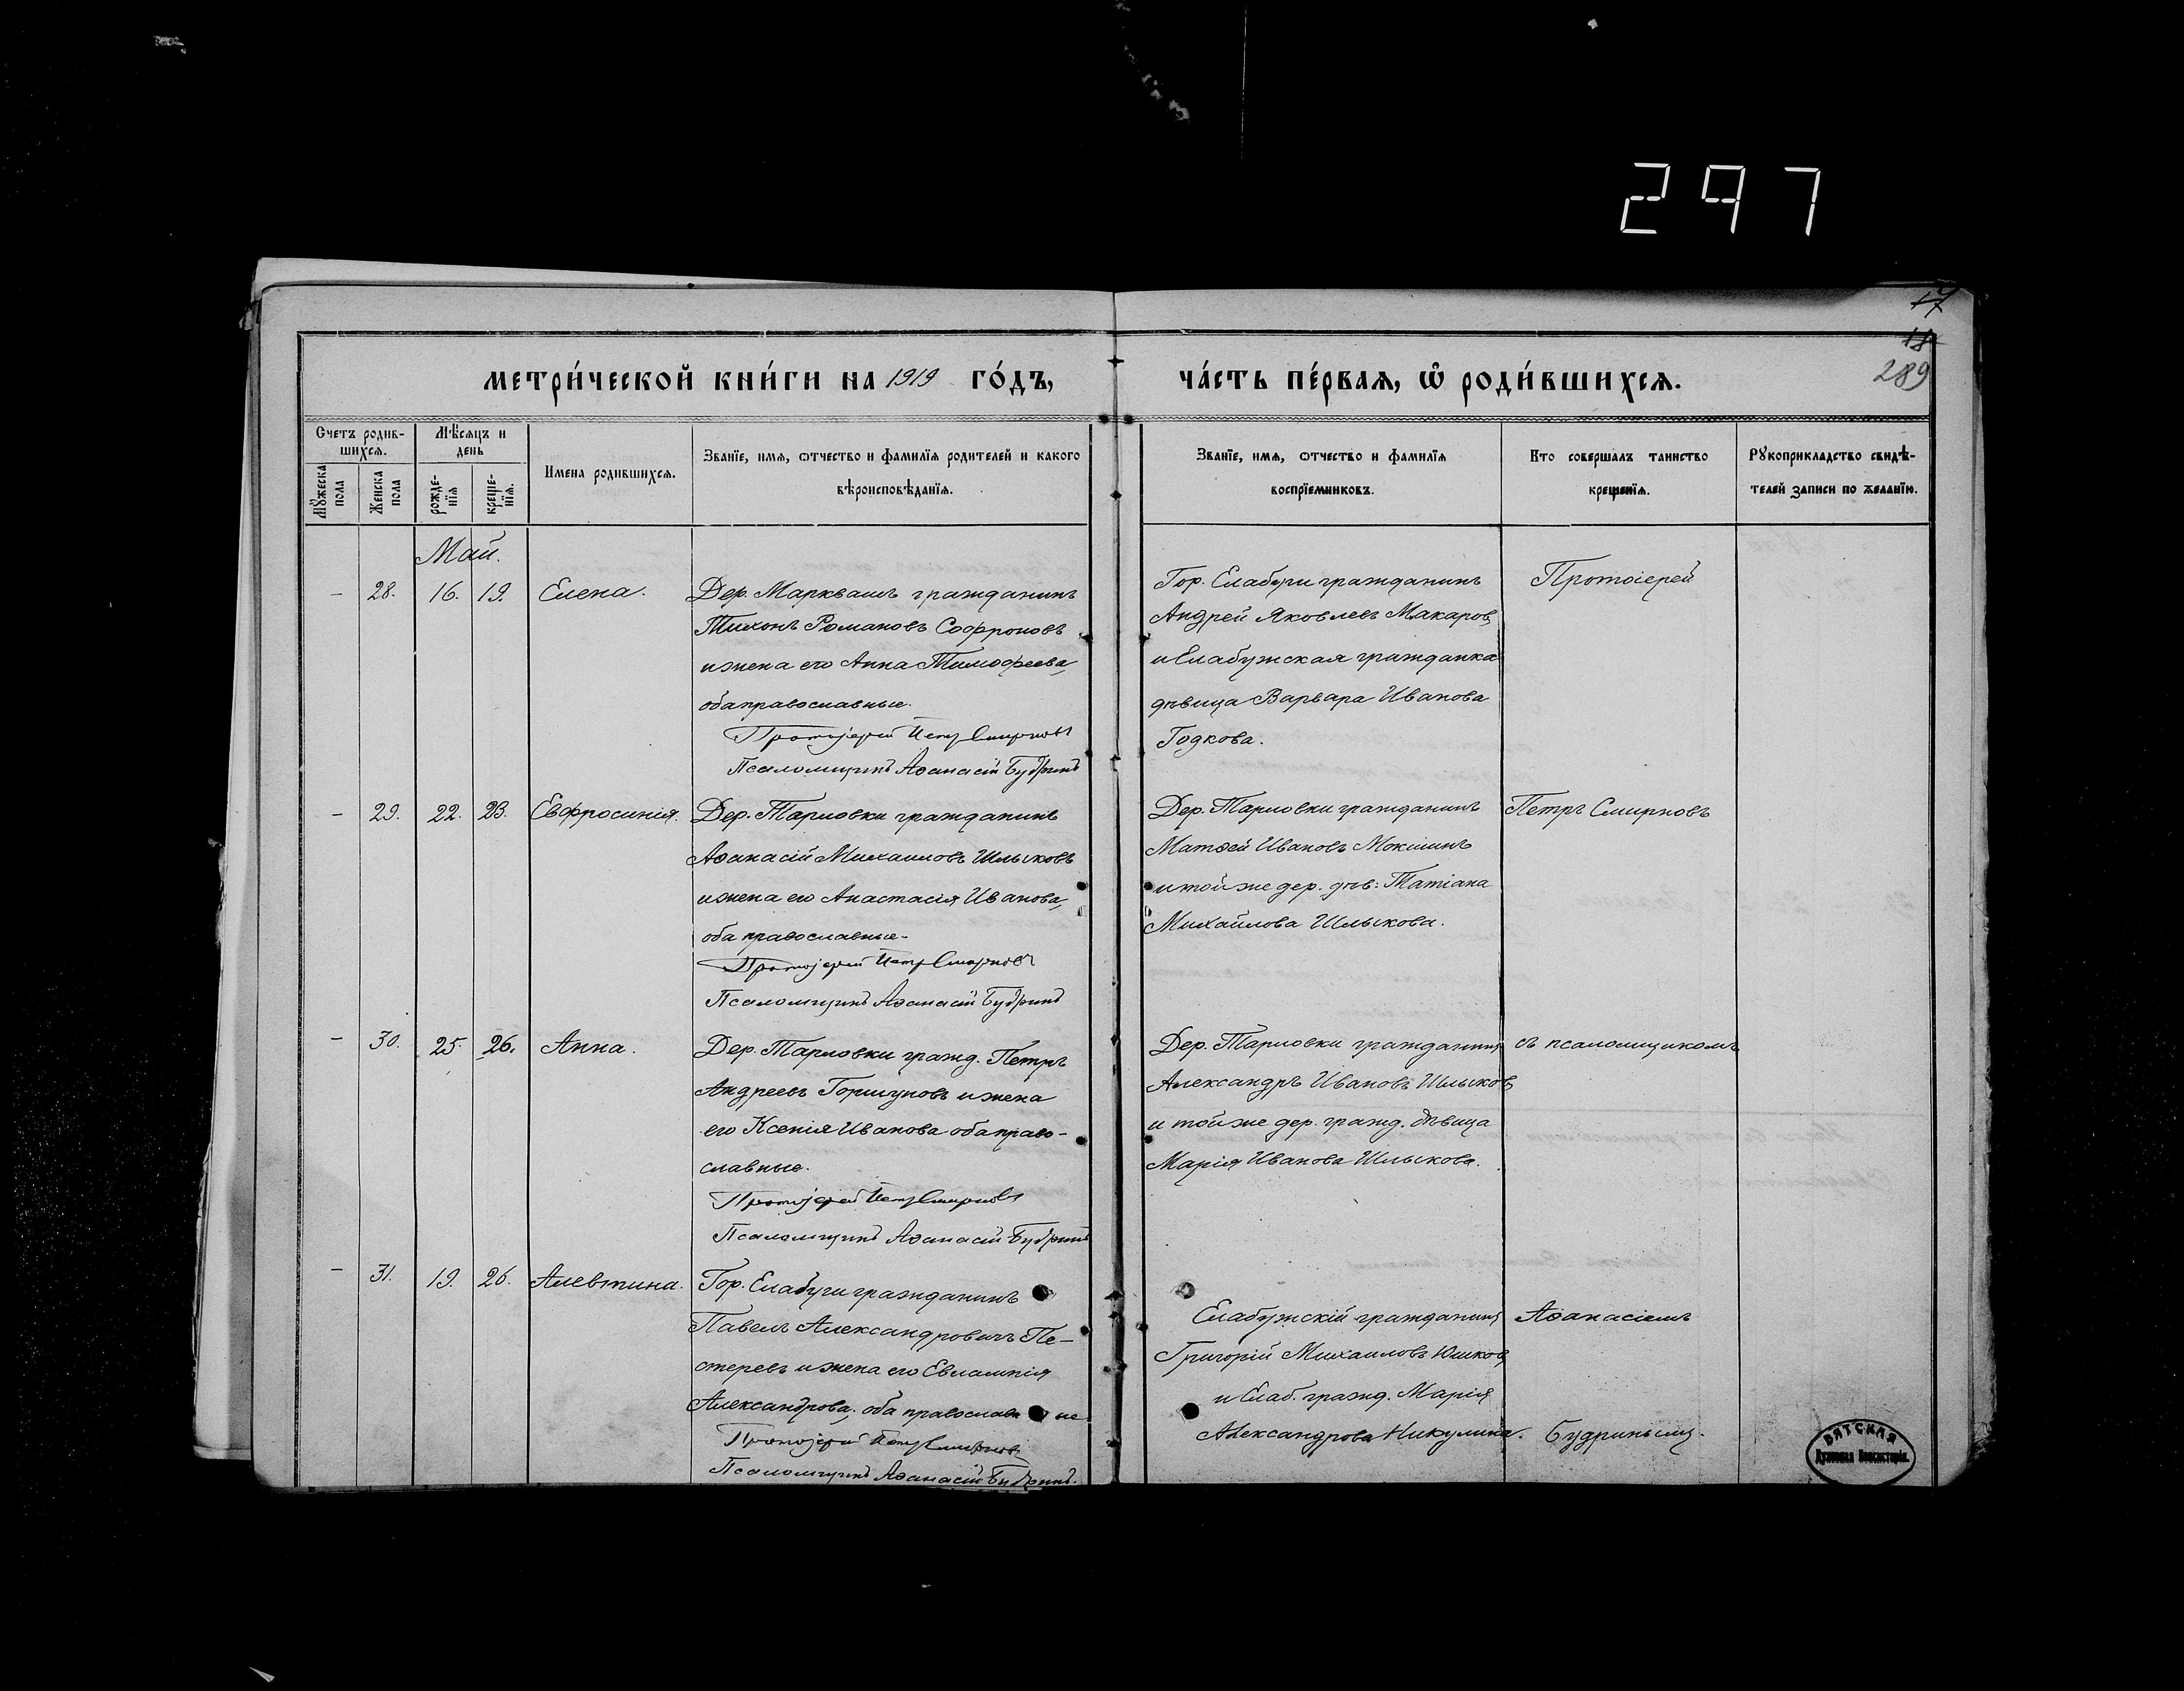 297
17
18
289
метри́ческой кни́ги на 1919 го́дъ,
ча́сть пе́рвая, ѿ роди́вшихся.
Счетъ родив-
шихся.
Мѣсяцъ и
день
Мꙋжеска
пола
Женска
пола
рожде-
нїя
креще-
нїя.
Имена родившихся.
Званїе, имя, ѻтчество и фамилїя родителей и какого
вѣроисповѣданїя.
Званїе, имя, ѻтчество и фамилїя
воспрїемниковъ.
Кто совершалъ таинство
крещенїя.
Рꙋкоприкладство свидѣ-
телей записи по желанїю.
Май.
– 28. 16. 19. Елена.
Дер. Марквашъ гражданинъ
Тихонъ Романовъ Софроновъ
и жена его Анна Тимофеева,
оба православные.
Протоіерей Петръ Смирновъ
Псаломщикъ Аѳанасій Будринъ
Гор. Елабуги гражданинъ
Андрей Яковлевъ Макаров,
и Елабужская гражданка
дѣвица Варвара Иванова
Годкова.
Протоіерей
– 29. 22. 23. Евфросинія.
Дер. Тарловки гражданинъ
Аѳанасій Михаиловъ Шлыковъ
и жена его Анастасія Иванова,
оба православные-
Протоіерей Петръ Смирновъ
Псаломщикъ Аѳанасій Будринъ
Дер. Тарловки гражданинъ
Матѳей Ивановъ Мокшинъ
и той же дер. дѣв: Татіана
Михайлова Шлыкова.
Петръ Смирновъ
– 30. 25. 26. Анна.
Дер. Тарловки гражд. Петръ
Андреевъ Горшуновъ и жена
его Ксенія Иванова оба право-
славные.
Протоіерей Петръ Смирновъ
Псаломщикъ Аѳанасій Будринъ
Дер. Тарловки гражданинъ
Александръ Ивановъ Шлыков
и той же дер. гражд. дѣвица
Марія Иванова Шлыкова.
съ псаломщикомъ
– 31. 19. 26. Алевтина.
Гор. Елабуги гражданинъ
Павелъ Александровичъ Пе-
стеревъ и жена его Евлампія
Александрова, оба православные
Протоіерей Петръ Смирновъ
Псаломщикъ Аѳанасій Будринъ.
Елабужскій гражданинъ
Григорій Михаиловъ Юшков,
и Елаб. гражд. Марія
Александрова Никулина.
Аѳанасіемъ
Будринымъ.
ВЯТСКАЯ
Духовная Консисторія.